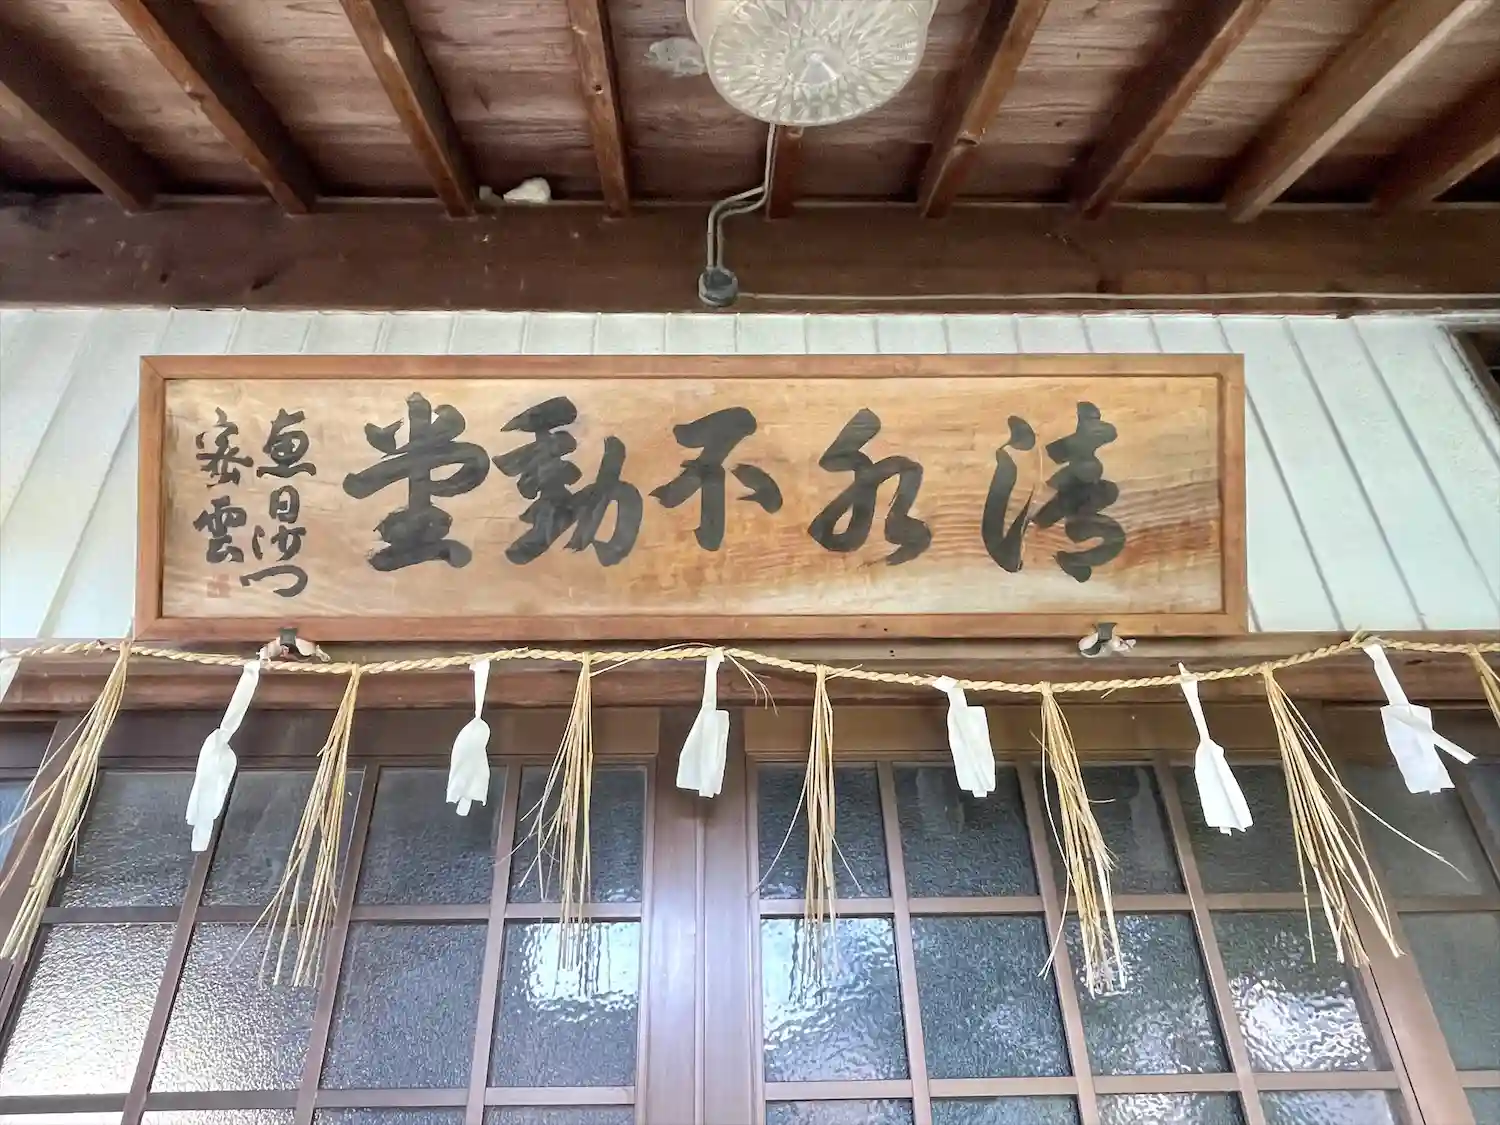 清水不動堂
恵日沙門
密雲